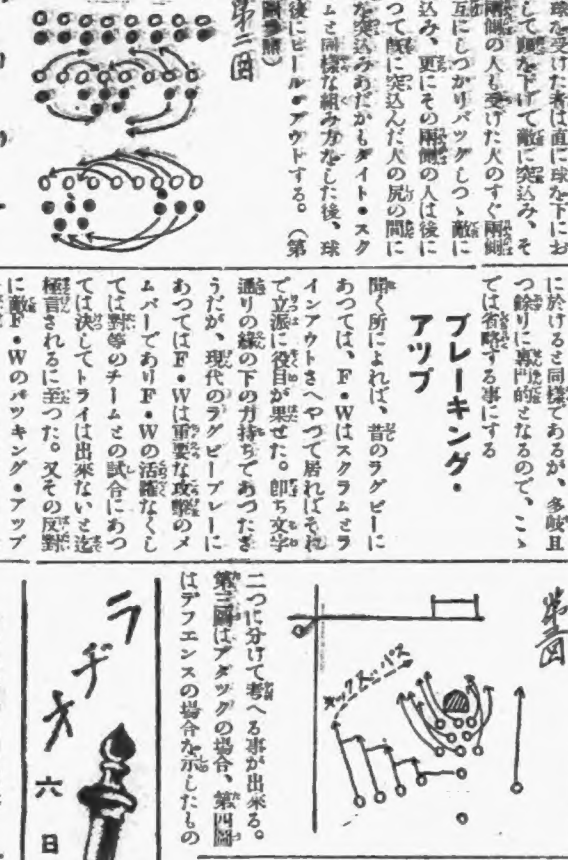 球を受けた者は直に球を下にお
して頭を下げて敵に突込み、そ
兩側の人も受けた人のすぐ兩側
互にしつかりバツグしつゝ敵に
込み、更にその兩側の人は後に
つて既に突込んだ人の尻の間に
を突込みあたかもタイト・スク
ムと同樣な組み方をした後、球
後にヒール・アウトする。（第
圖參照）
第二図
に於けると同樣であるが、多岐且
つ餘りに專門的となるので、こゝ
では省略する事にする
ブレーキング・
アツプ
聞く所によれば、昔のラグビーに
あつては、F・Wはスクラムとラ
インアウトさへやつて居ればそれ
で立派に役目が果せた。即ち文字
通りの緣の下の力持ちであつたさ
うだが、現代のラグビープレーに
あつてはF・Wは重要な攻擊のメ
ムバーでありF・Wの活躍なくし
ては對等のチームとの試合にあつ
ては決してトライは出來ないと迄
極言されるに至つた。又その反對
に敵F・Wのバツキング・アツプ
第三図
バックスにパス
二つに分けて考へる事が出來る。
第三圖はアタツクの場合、第四圖
はデフエンスの場合を示したもの
ラヂオ
六日